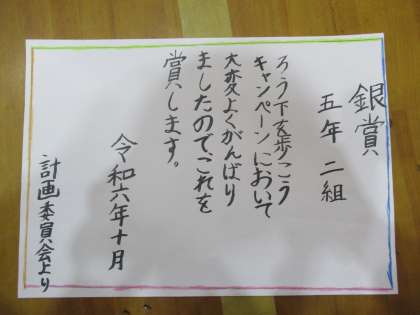 銀賞
五年二組
ろう下を歩こう
キャンペーンにおいて
大変よくがんばり
ましたので、これを
賞します。
令和六年十月
計画委員会より